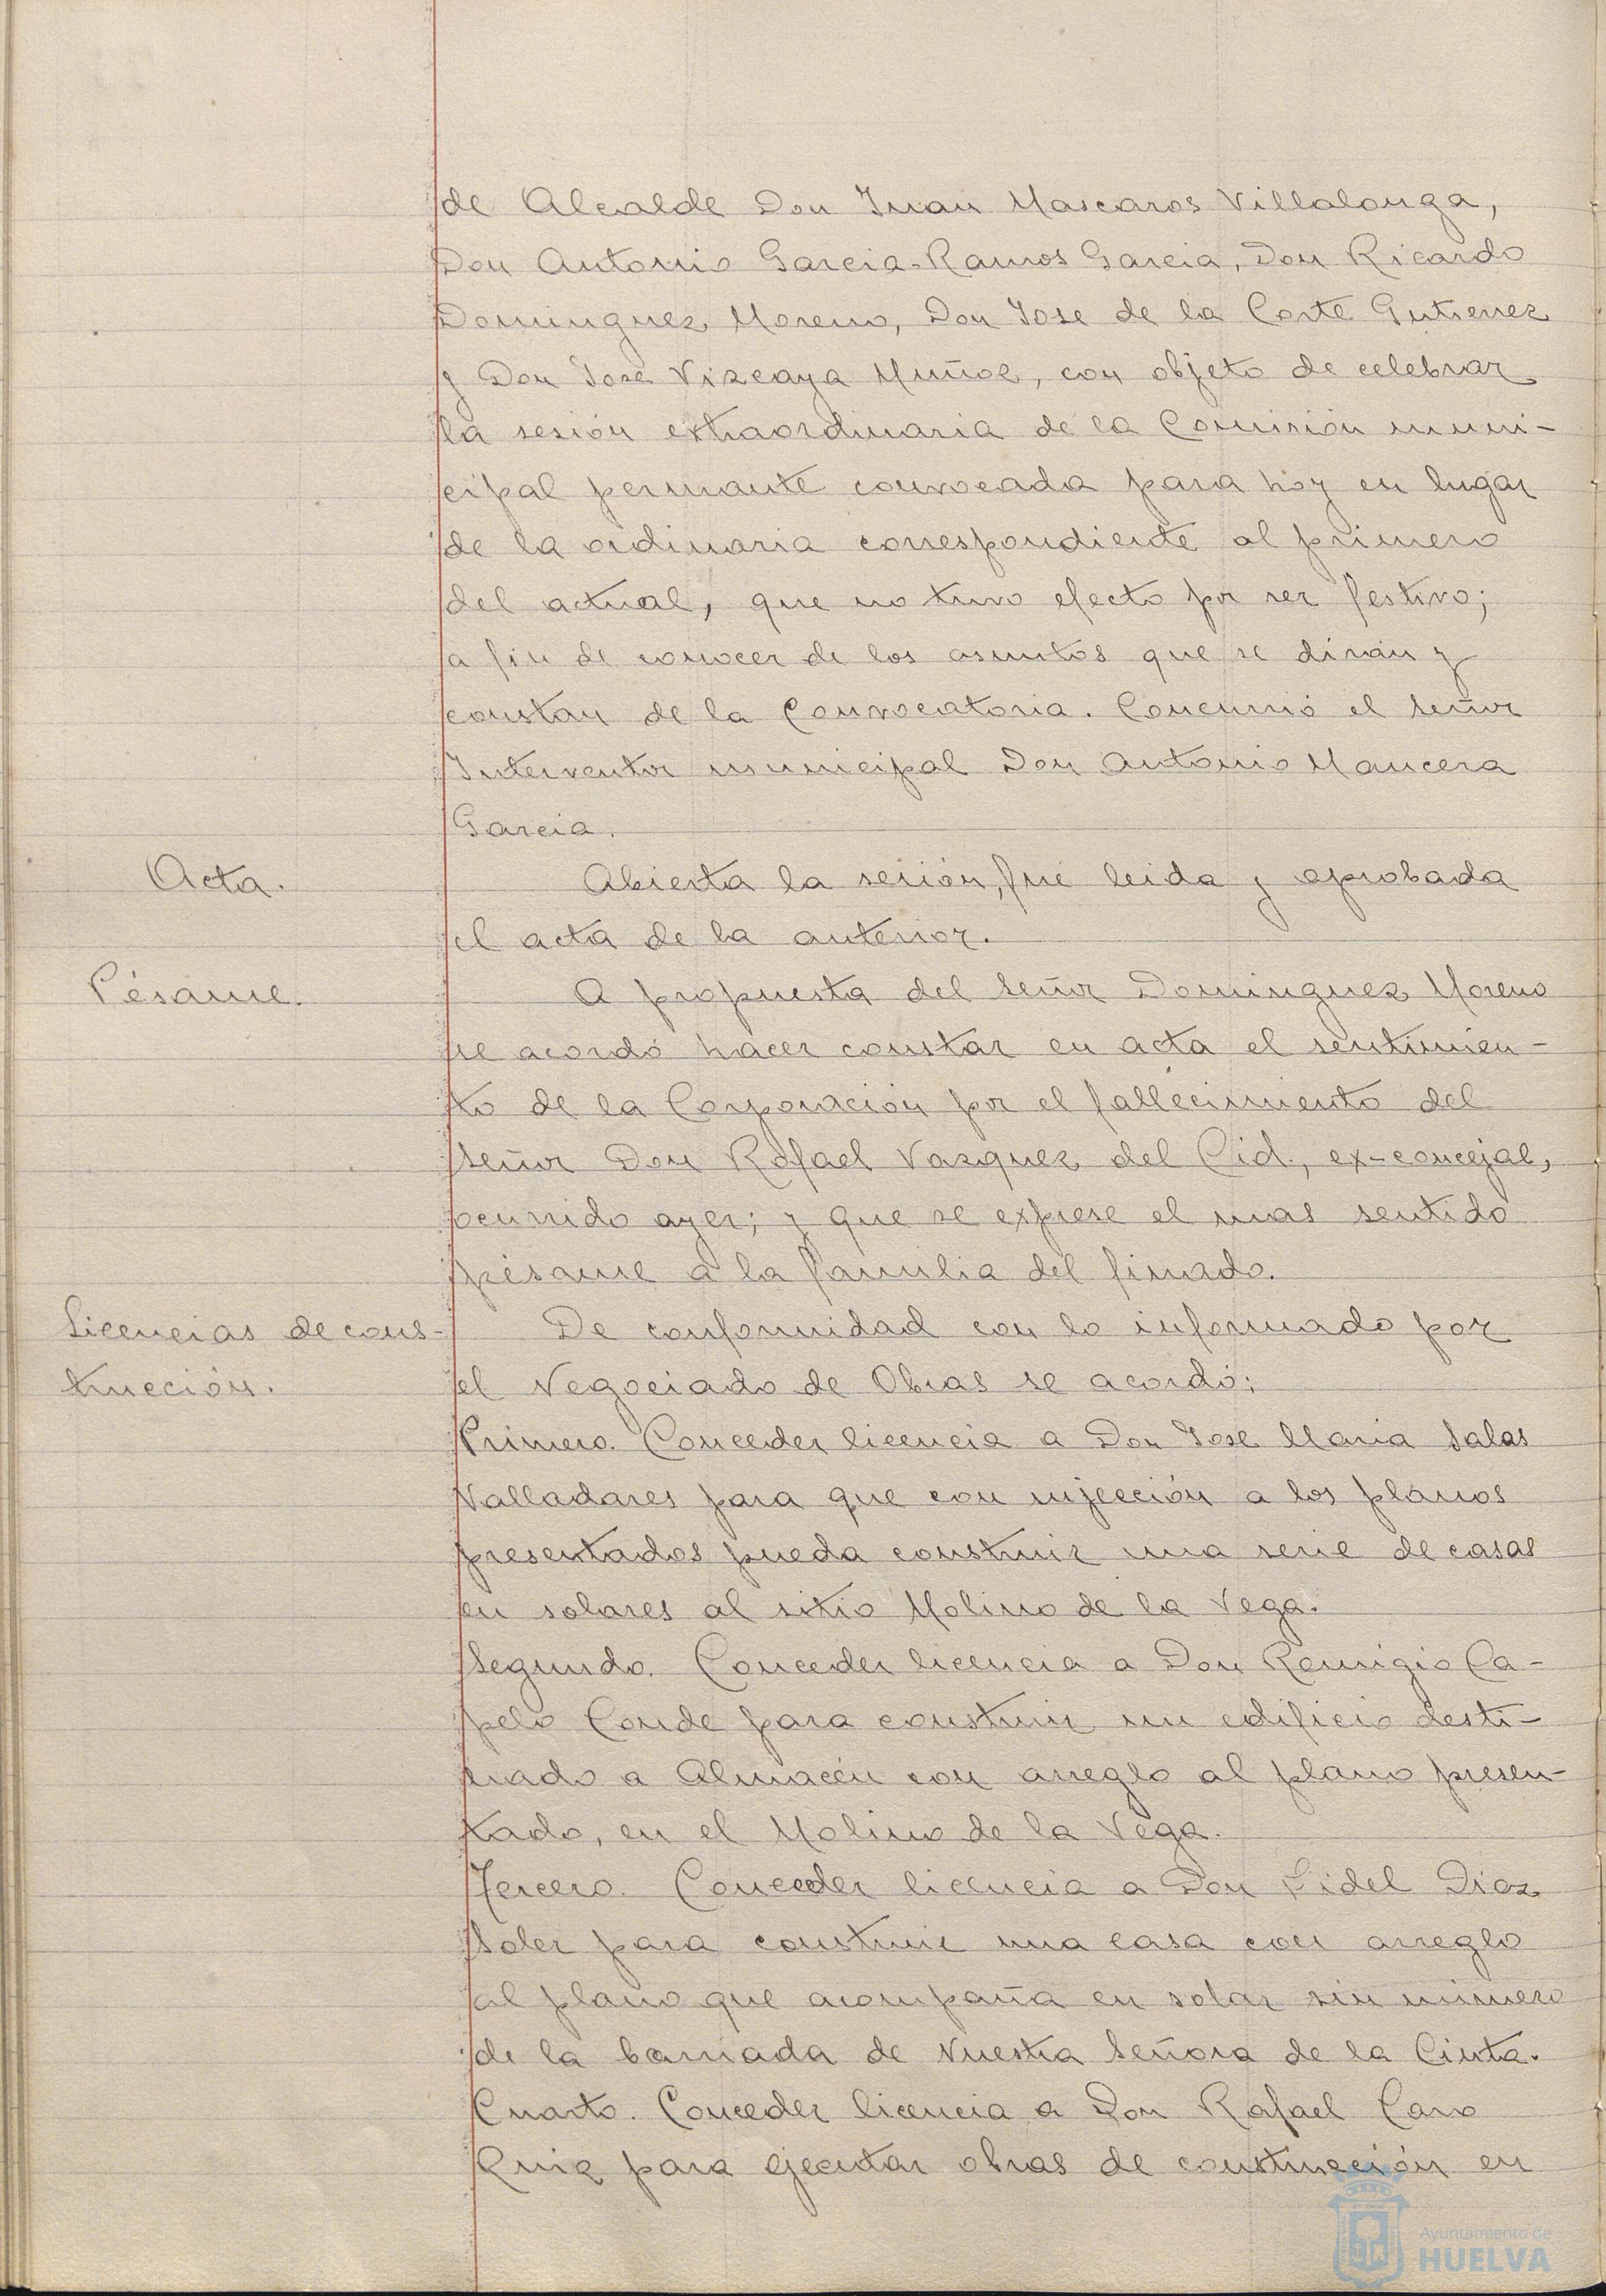 de Alcalde Don Juan Mascaros Villalonga,
Don Antonio Garcia-Ramos Garcia, Don Ricardo
Dominguez Moreno, Don Jose de la Corte Gutierrez
y Don José Vizcaya Muñoz, con objeto de celebrar
la sesión extraordinaria de la Comisión muni-
cipal permante convocada para hoy en lugar
de la ordinaria correspondiente al primero
del actual, que no tuvo efecto por ser festivo;
a fin de conocer de los asuntos que se dirán y
constan de la Convocatoria. Concurrió el señor
Interventor municipal Don Antonio Mancera
Garcia.
Acta.
Abierta la sesión, fué leida y aprobada
el acta de la anterior.
Pésame.
A propuesta del señor Dominguez Moreno
se acordó hacer constar en acta el sentimien-
to de la Corporación por el fallecimiento del
señor Don Rafael Vazquez del Cid, ex-concejal,
ocurrido ayer; y que se exprese el mas sentido
pésame a la familia del finado.
Licencias de cons-
trucción.
De conformidad con lo informado por
el Negociado de Obras se acordó:
Primero. Conceder licencia a Don Jose Maria Salas
Valladares para que con sujección a los planos
presentados pueda construir una serie de casas
en solares al sitio Molino de la Vega.
Segundo. Conceder licencia a Don Remigio Ca-
pelo Conde para construir un edificio desti-
nado a Almacén con arreglo al plano presen-
tado, en el Molino de la Vega.
Tercero. Conceder licencia a Don Fidel Diaz
Soler para construir una casa con arreglo
al plano que acompaña en solar sin número
de la barriada de Nuestra Señora de la Cinta.
Cuarto. Conceder licencia a Don Rafael Caro
Ruiz para ejecutar obras de construcción en
Ayuntamiento de
HUELVA